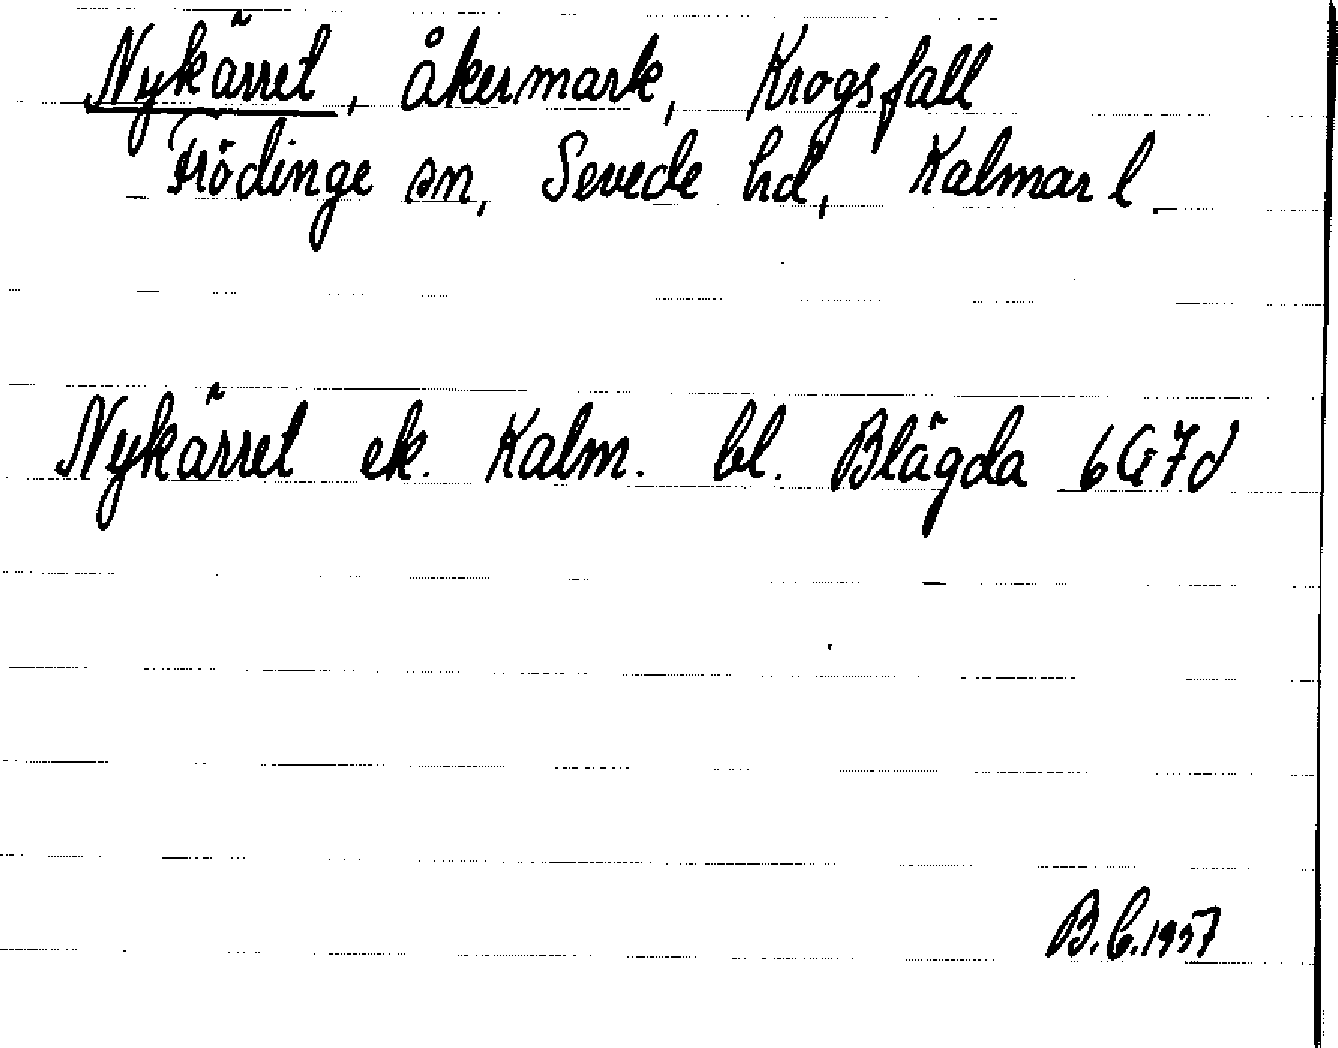 Nykärret, åkermark, Krogsfall
Frödinge sn, Sevede hd, Kalmar l.
Nykärret ek. Kalm. bl. Blägda 6G7d
B.C.1957